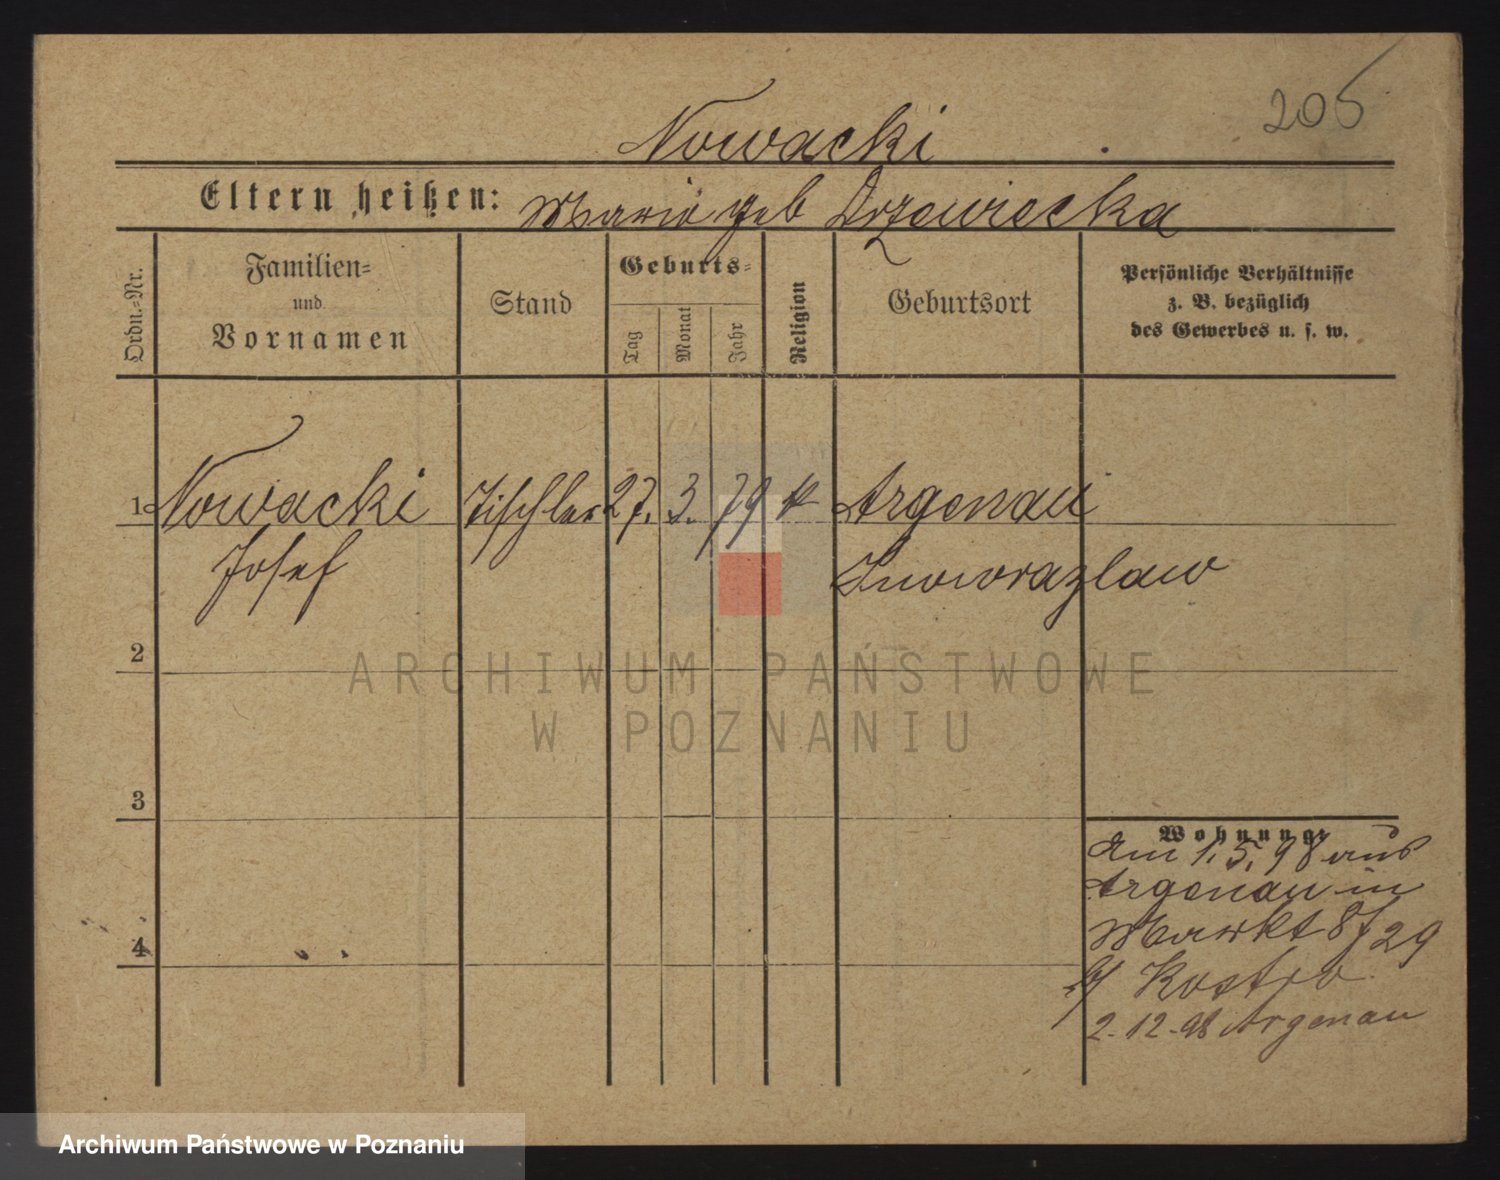 205
Nowacki
Eltern heißen: Marie geb Drzewiecka
Ordn.-Nr.
Familien-
und
Vornamen
Stand
Geburts-
Tag
Monat
Jahr
Religion
Geburtsort
Persönliche Verhältnisse
z. B. bezüglich
des Gewerbes u. s. w.
1 Nowacki Tischler 27. 3. 79 k Argenau
Josef Inowrazlaw
2
3
4
Wohnung
Am 1. 5. 98 aus
Argenau in
Markt 8/29
b/ Kostro
2.12.98 Argenau
ARCHIWUM PAŃSTWOWE
W POZNANIU
Archiwum Państwowe w Poznaniu